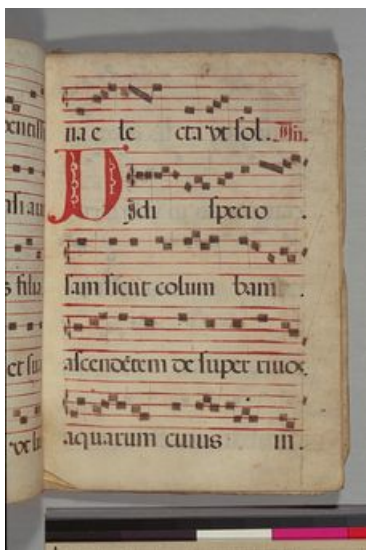 na e le cta vt sol.
Vidi specio
sam sicut colum bam
ascendētem de super riuos
aquarum cuius in.
s filia
et sua